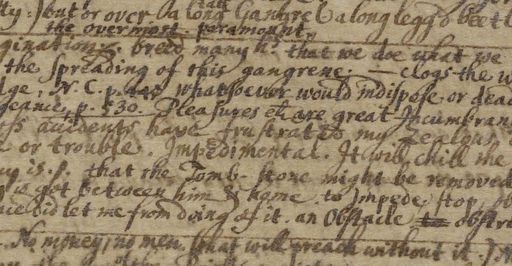 but or over. a long Gangrel a long legg'd beetl
the overmost. paramount
gination. breed many hs. that we doe what we
the spreading of this gangrene — clogs the w
N. C. p. whatsoever would indispose or dead
geance, p. 530. Pleasures &c are great Incumbran
accidents have frustrated my zealous
or trouble. Impedimental. It will chill the
is. s. that the Tomb-stone might be removed
is got between him & home. to Impede, stop, ob
did let me from doing of it. an Obstacle obstru
No money, no men, what will preach without it.